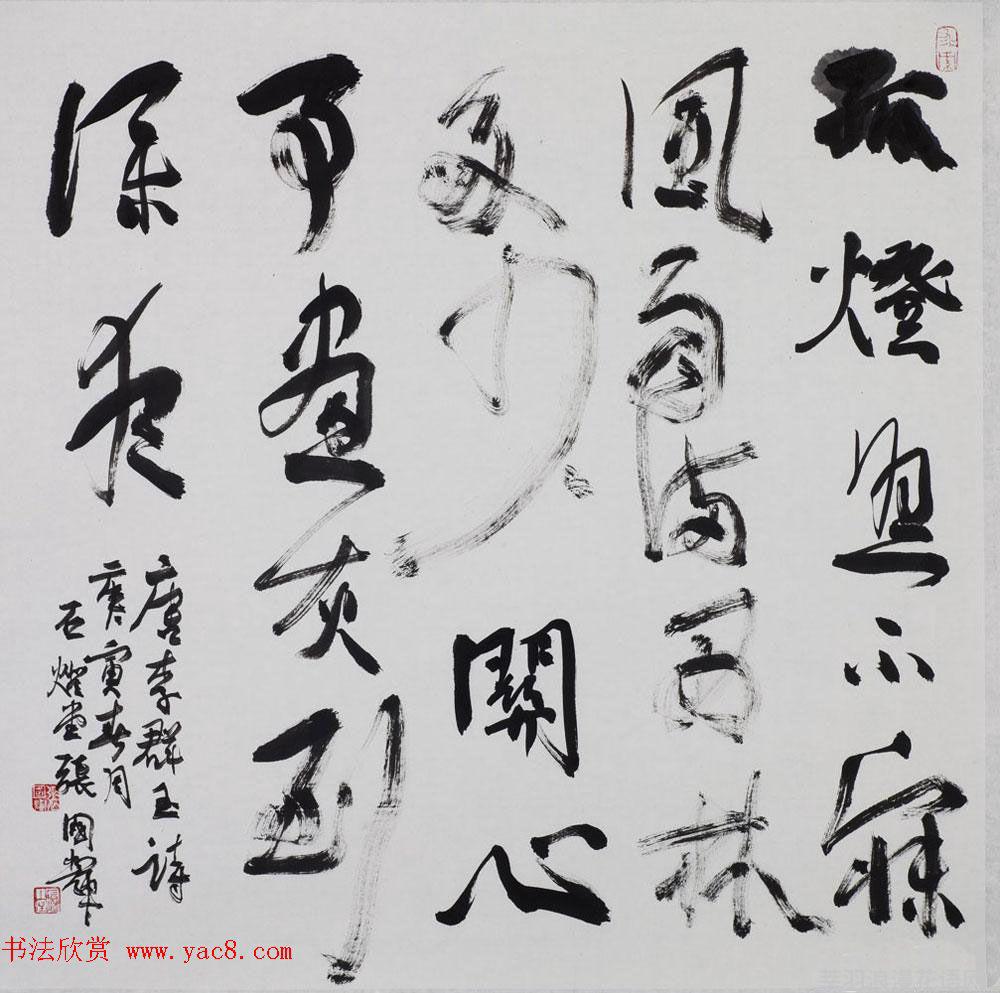 孤燈照不寐
風雨滿西林
多少關心
事畫灰到
深夜
唐李群玉詩
庚寅春月
石堂張國
书法欣赏 www.yac8.com